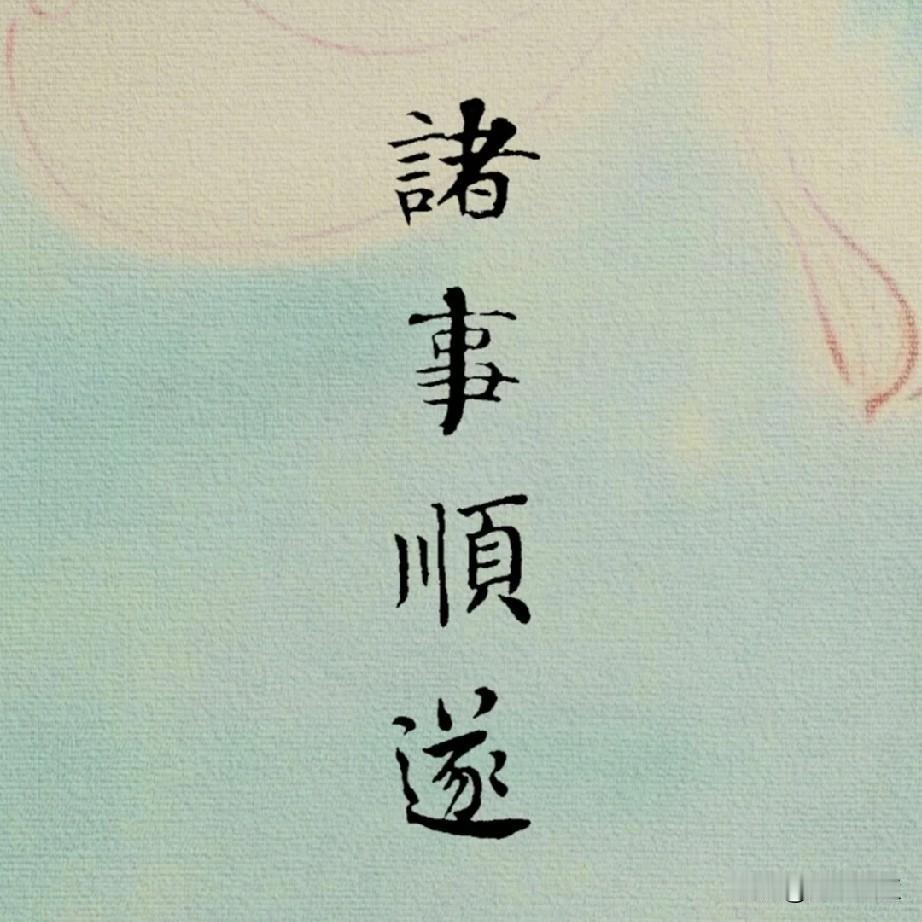 諸事順遂